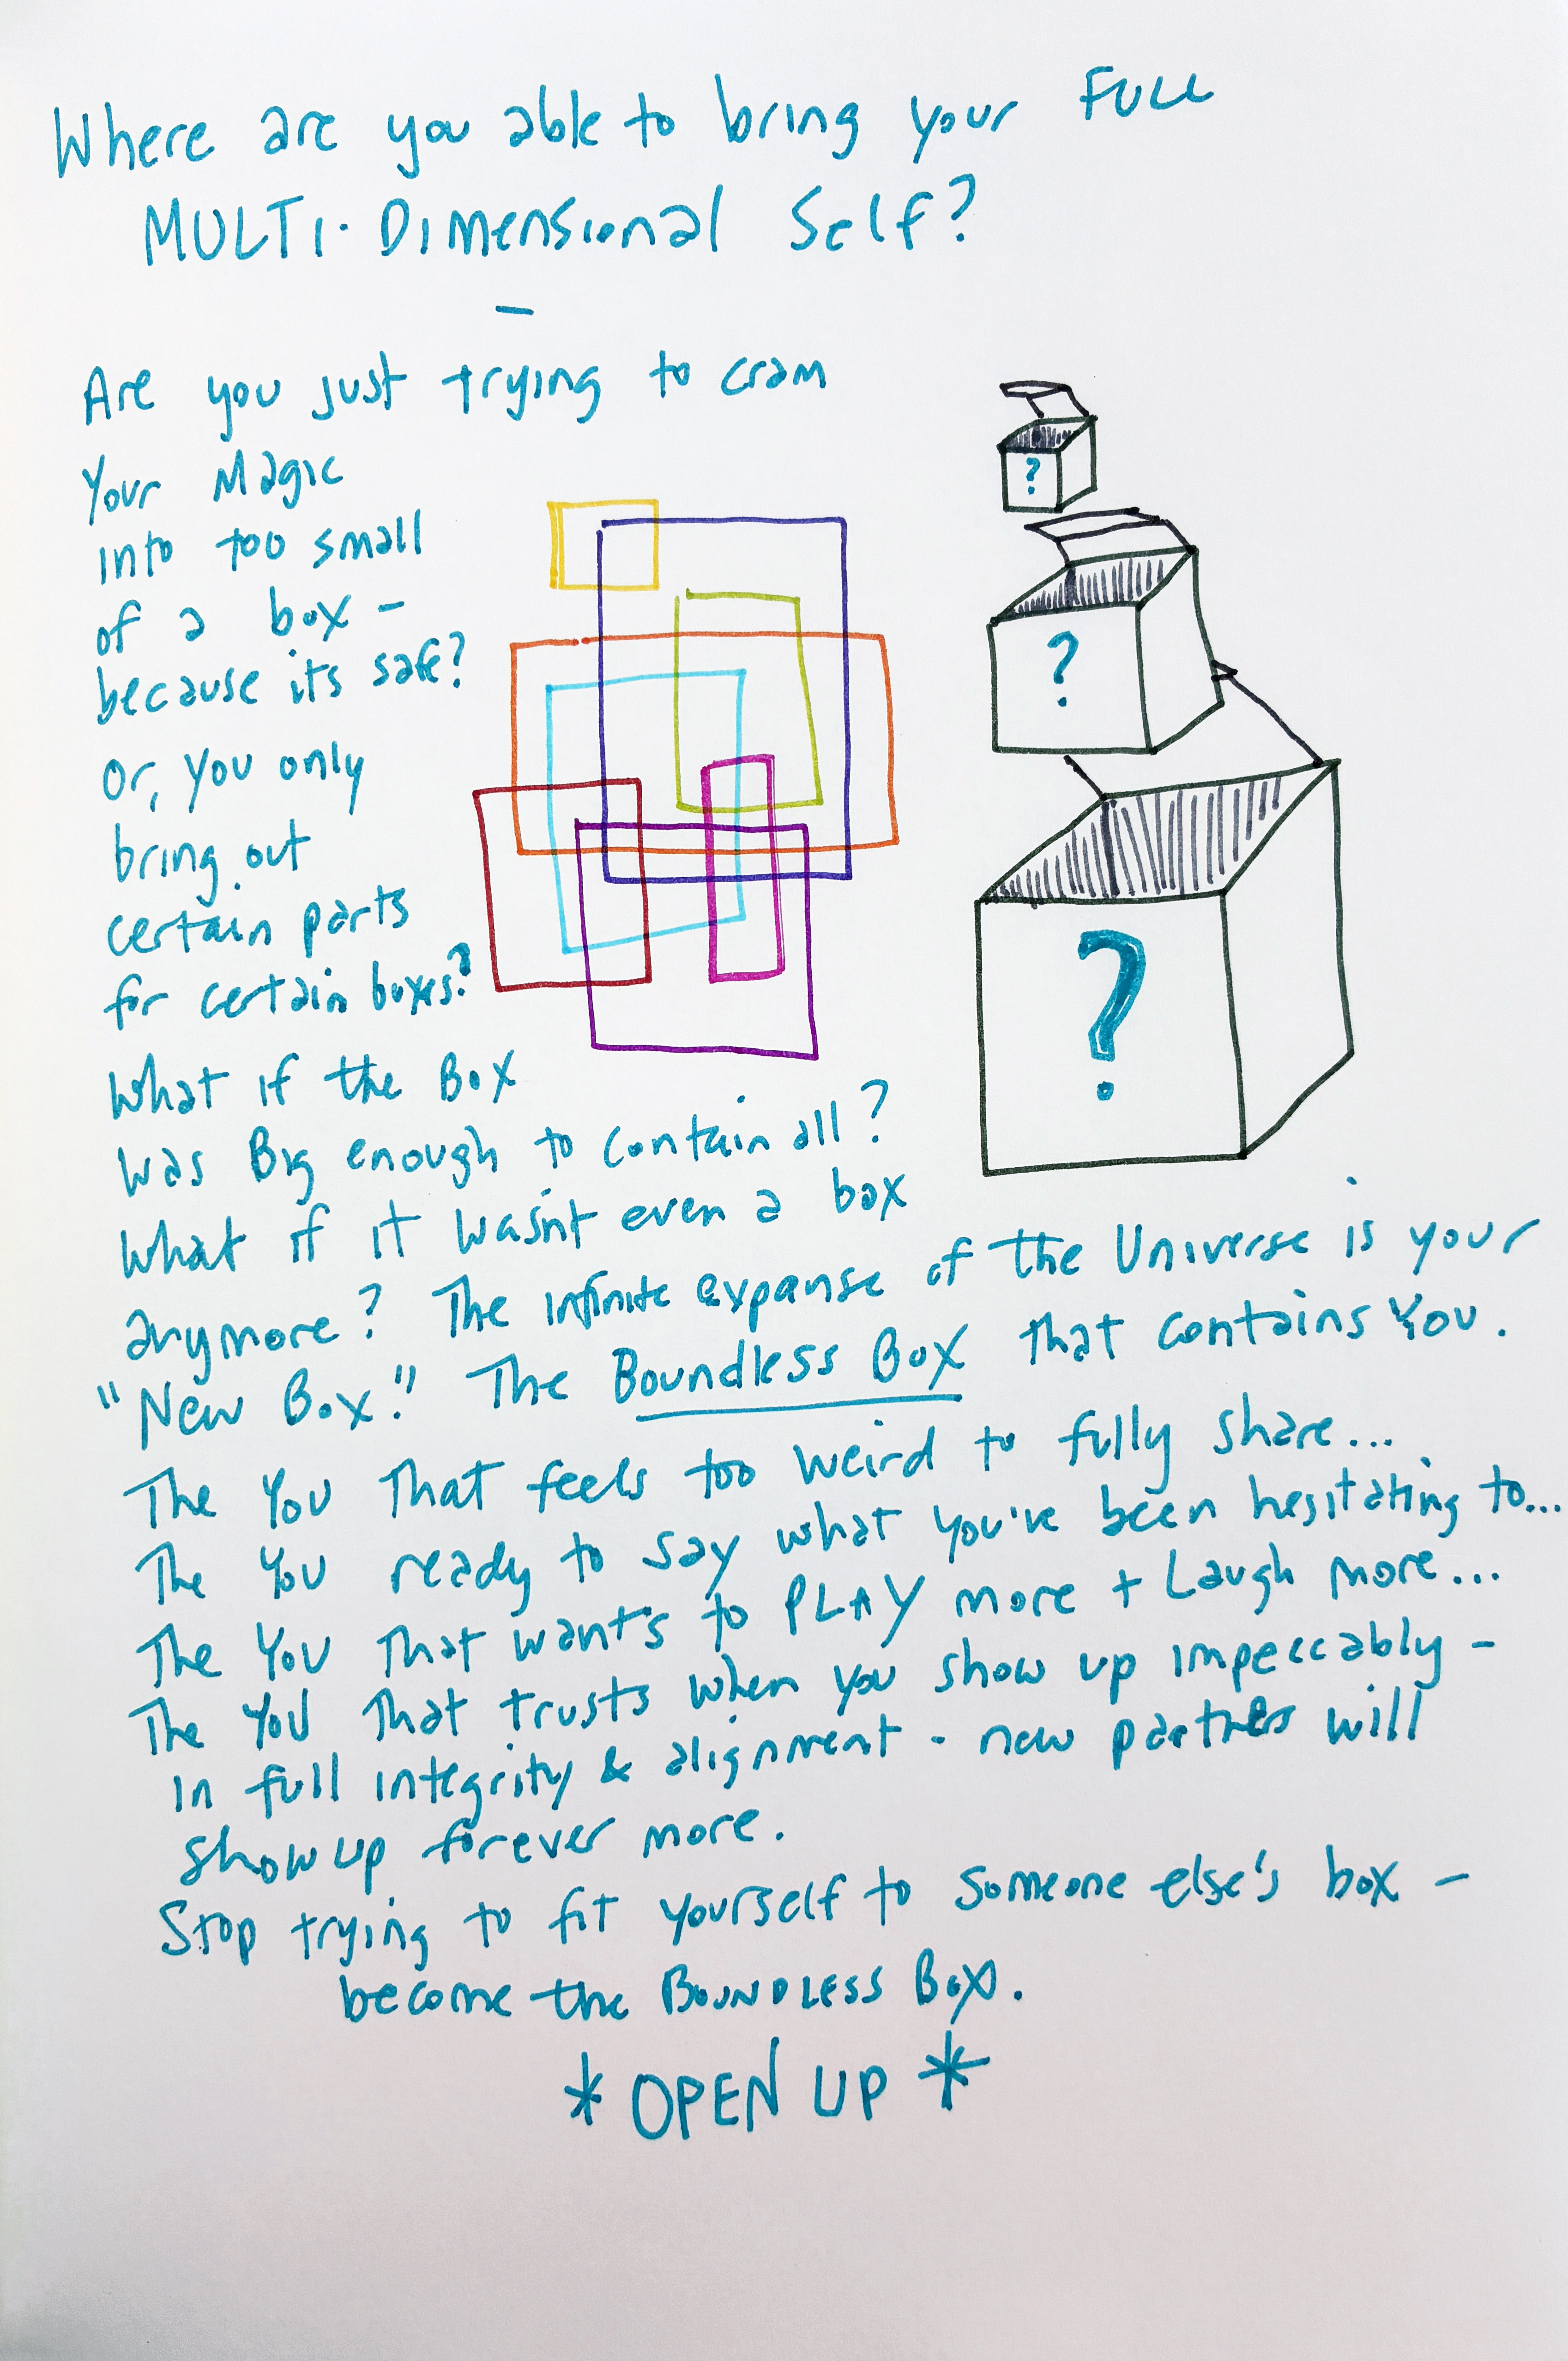 Where are you able to bring your FULL
MULTI-Dimensional Self?
–
Are you just trying to cram
Your Magic
into too small
of a box –
because its safe?
Or, you only
bring out
certain parts
for certain boxes?
?
?
?
What if the Box
was Big enough to contain all?
What if it wasn't even a box
anymore? The infinite expanse of the Universe is your
"New Box." The Boundless Box that contains You.
The You That feels too weird to fully share...
The You ready to say what you've been hesitating to...
The You That wants to PLAY more + Laugh more...
The You That trusts when you show up impeccably –
in full integrity & alignment - new partners will
show up forever more.
Stop trying to fit yourself to someone else's box –
become the BOUNDLESS BOX.
* OPEN UP *